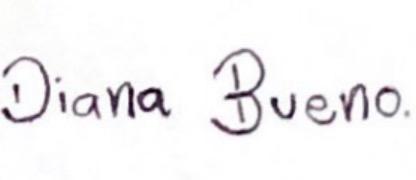 Diana Bueno.